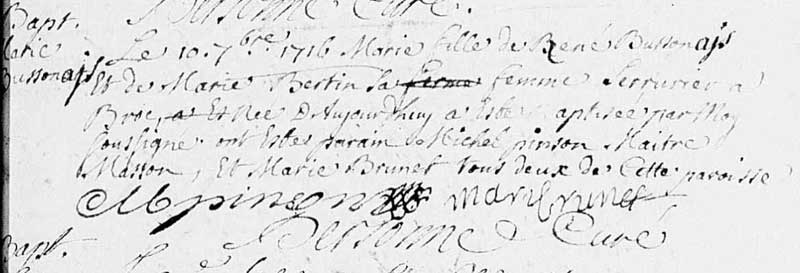 Personne Curé.
Bapt.
Marie
Bussonnais
Le 10. 7bre 1716 Marie fille de René Bussonais
Et de Marie Bertin sa ferme femme Serrurier a
Broc, a Et Née D'Aujourdhuy a Esté Baptisée par Moy
Soussigné ont Estes parain Michel pinson Maitre
Masson, Et Marie Brunet tous deux de Cette paroisse
M pinson marie brunet
Personne Curé
Bapt.